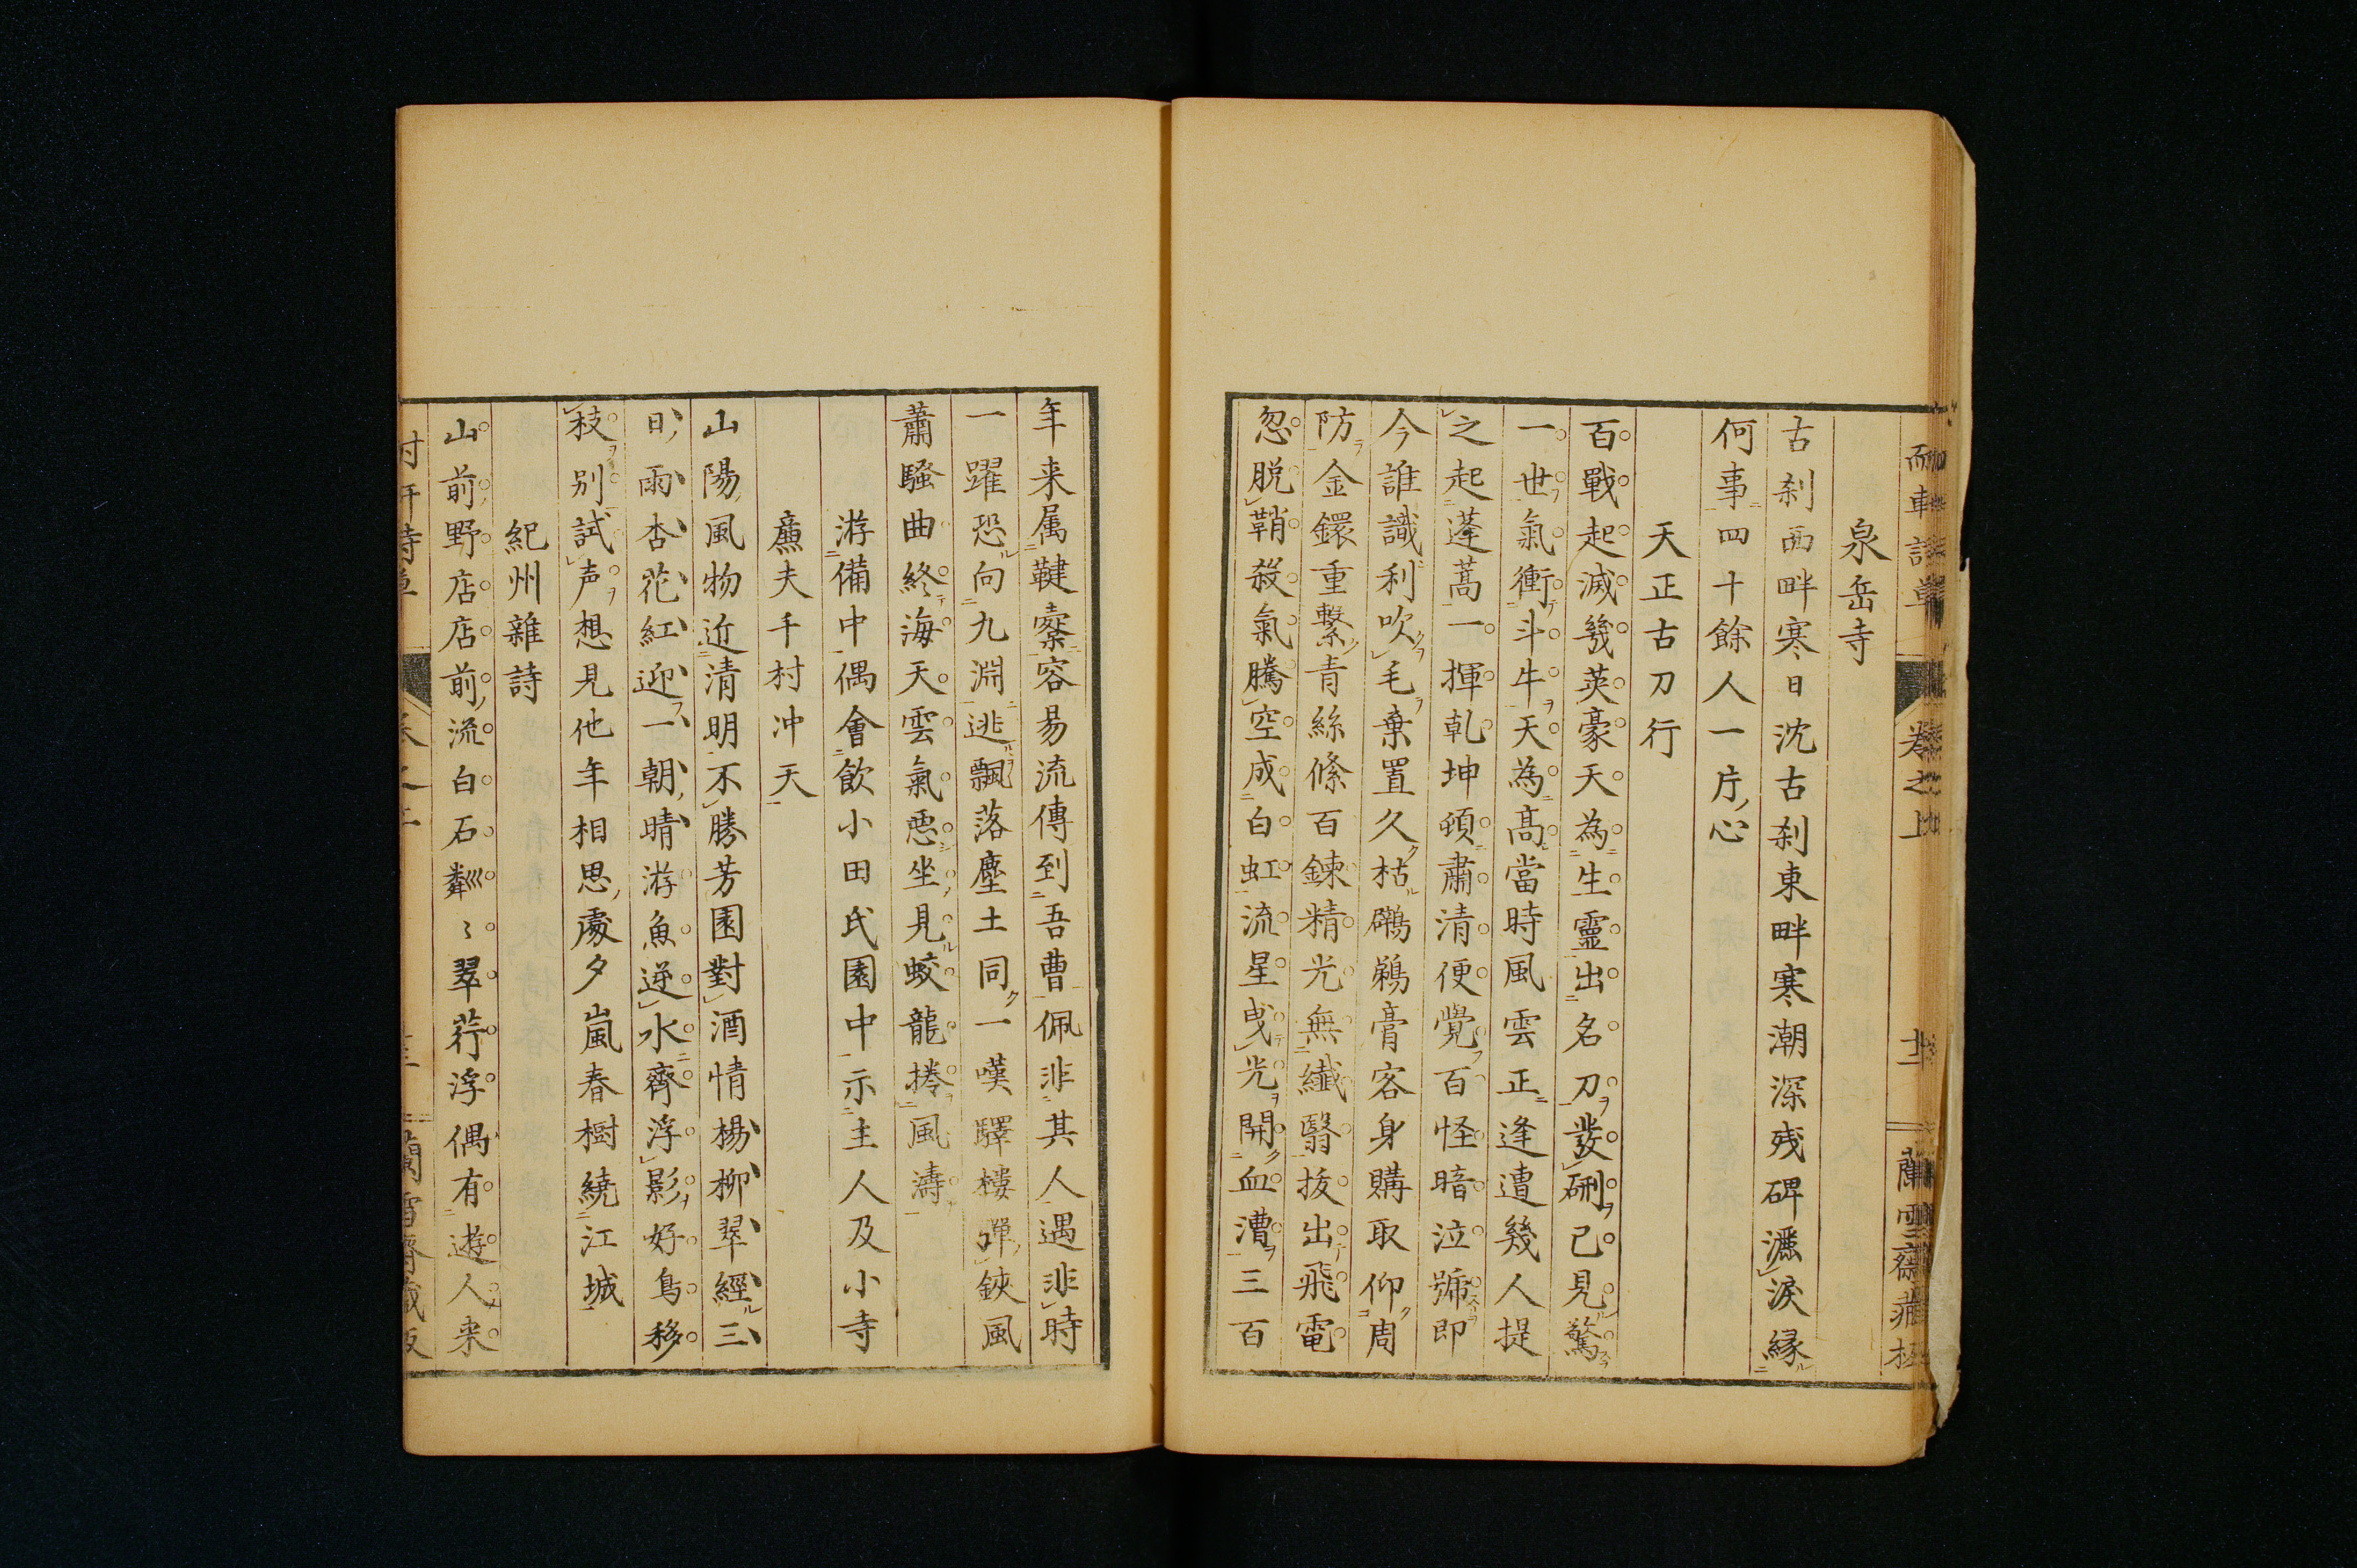 泉岳寺
古刹西畔寒日沈古刹東畔寒潮深残碑灑淚縁
何事四十餘人一片心
天正古刀行
百戰起滅幾英豪天為生靈出名刀發硎已見驚
一世氣衝斗牛天為髙當時風雲正逢遭幾人提
之起蓬蒿一揮乹坤頓肅清便覺百怪暗泣號即
今誰識利吹毛棄置久枯鸊鵜膏客身購取仰周
防金鐶重繋青絲絛百鍊精光無纖翳抜出飛電
忽脱鞘殺氣騰空成白虹流星曵光開血漕三百
年来属鞬櫜容易流傳到吾曹佩非其人遇非時
一躍恐向九淵逃飄落塵土同一嘆驛樓彈鋏風
蕭騷曲終海天雲氣悪坐見蛟龍捲風濤
游備中偶會飲小田氏園中示主人及小寺
廉夫千村冲天
山陽風物近清明不勝芳園對酒情楊柳翠經三
日雨杏花紅迎一朝晴游魚逆水齊浮影好鳥移
枝别試声想見他年相思處夕嵐春樹繞江城
紀州雜詩
山前野店店前流白石粼〻翠荇浮偶有遊人来